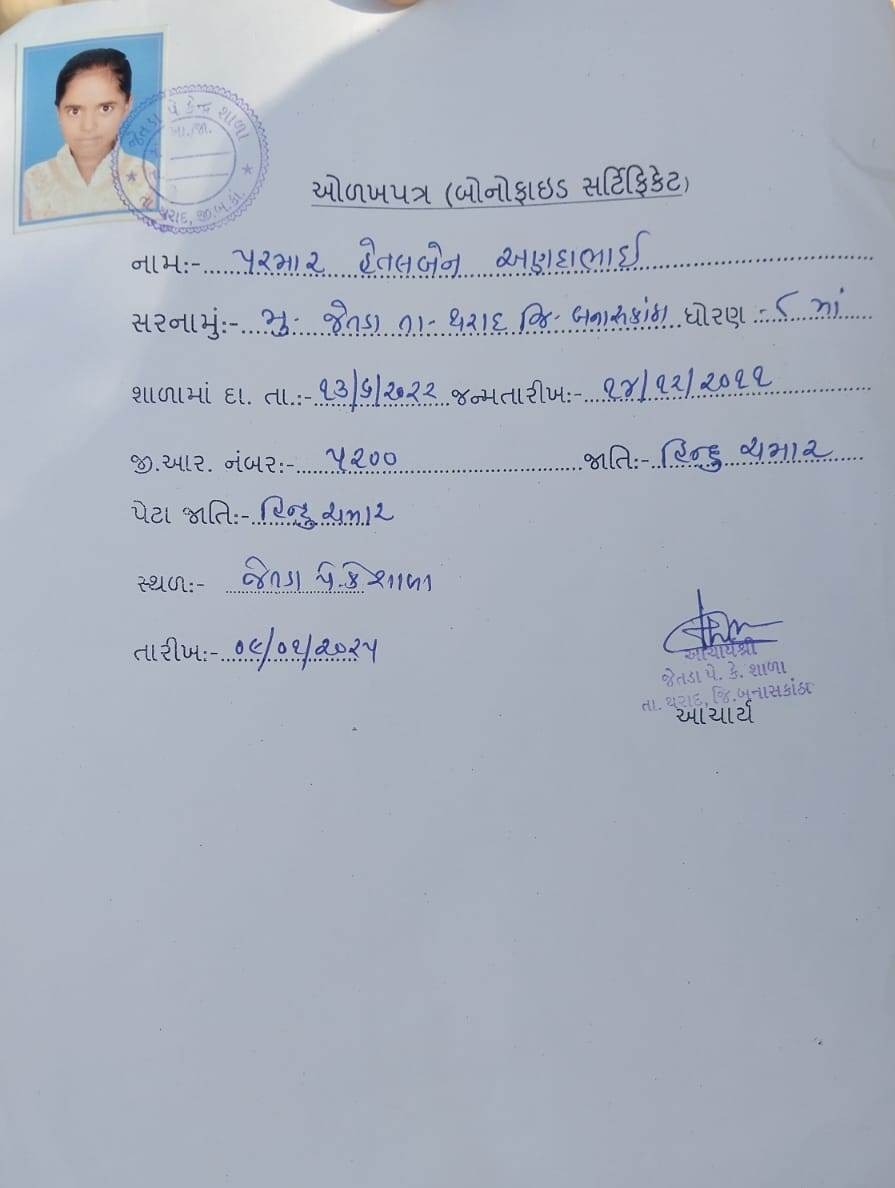 જેતડા પે કેન્દ્ર શાળા
તા. થરાદ, જી.બ.કાં.
ઓળખપત્ર (બોનોફાઇડ સર્ટિફિકેટ)
નામઃ- પરમાર હેતલબેન અણદાભાઈ
સરનામુંઃ- મુ- જેતડા તા- થરાદ જિ- બનાસકાંઠા ધોરણ - ૮ માં
શાળામાં દા. તા.ઃ- ૧૩/૬/૨૦૨૨ જન્મતારીખઃ- ૧૪/૧૨/૨૦૧૧
જી.આર. નંબરઃ- ૫૨૦૦ જાતિઃ- હિન્દુ ચમાર
પેટા જાતિઃ- હિન્દુ ચમાર
સ્થળઃ- જેતડા પે.કે શાળા
તારીખઃ- ૦૯/૦૧/૨૦૨૫
આચાર્યશ્રી
જેતડા પે. કે. શાળા
તા. થરાદ, જિ.બનાસકાંઠા
આચાર્ય